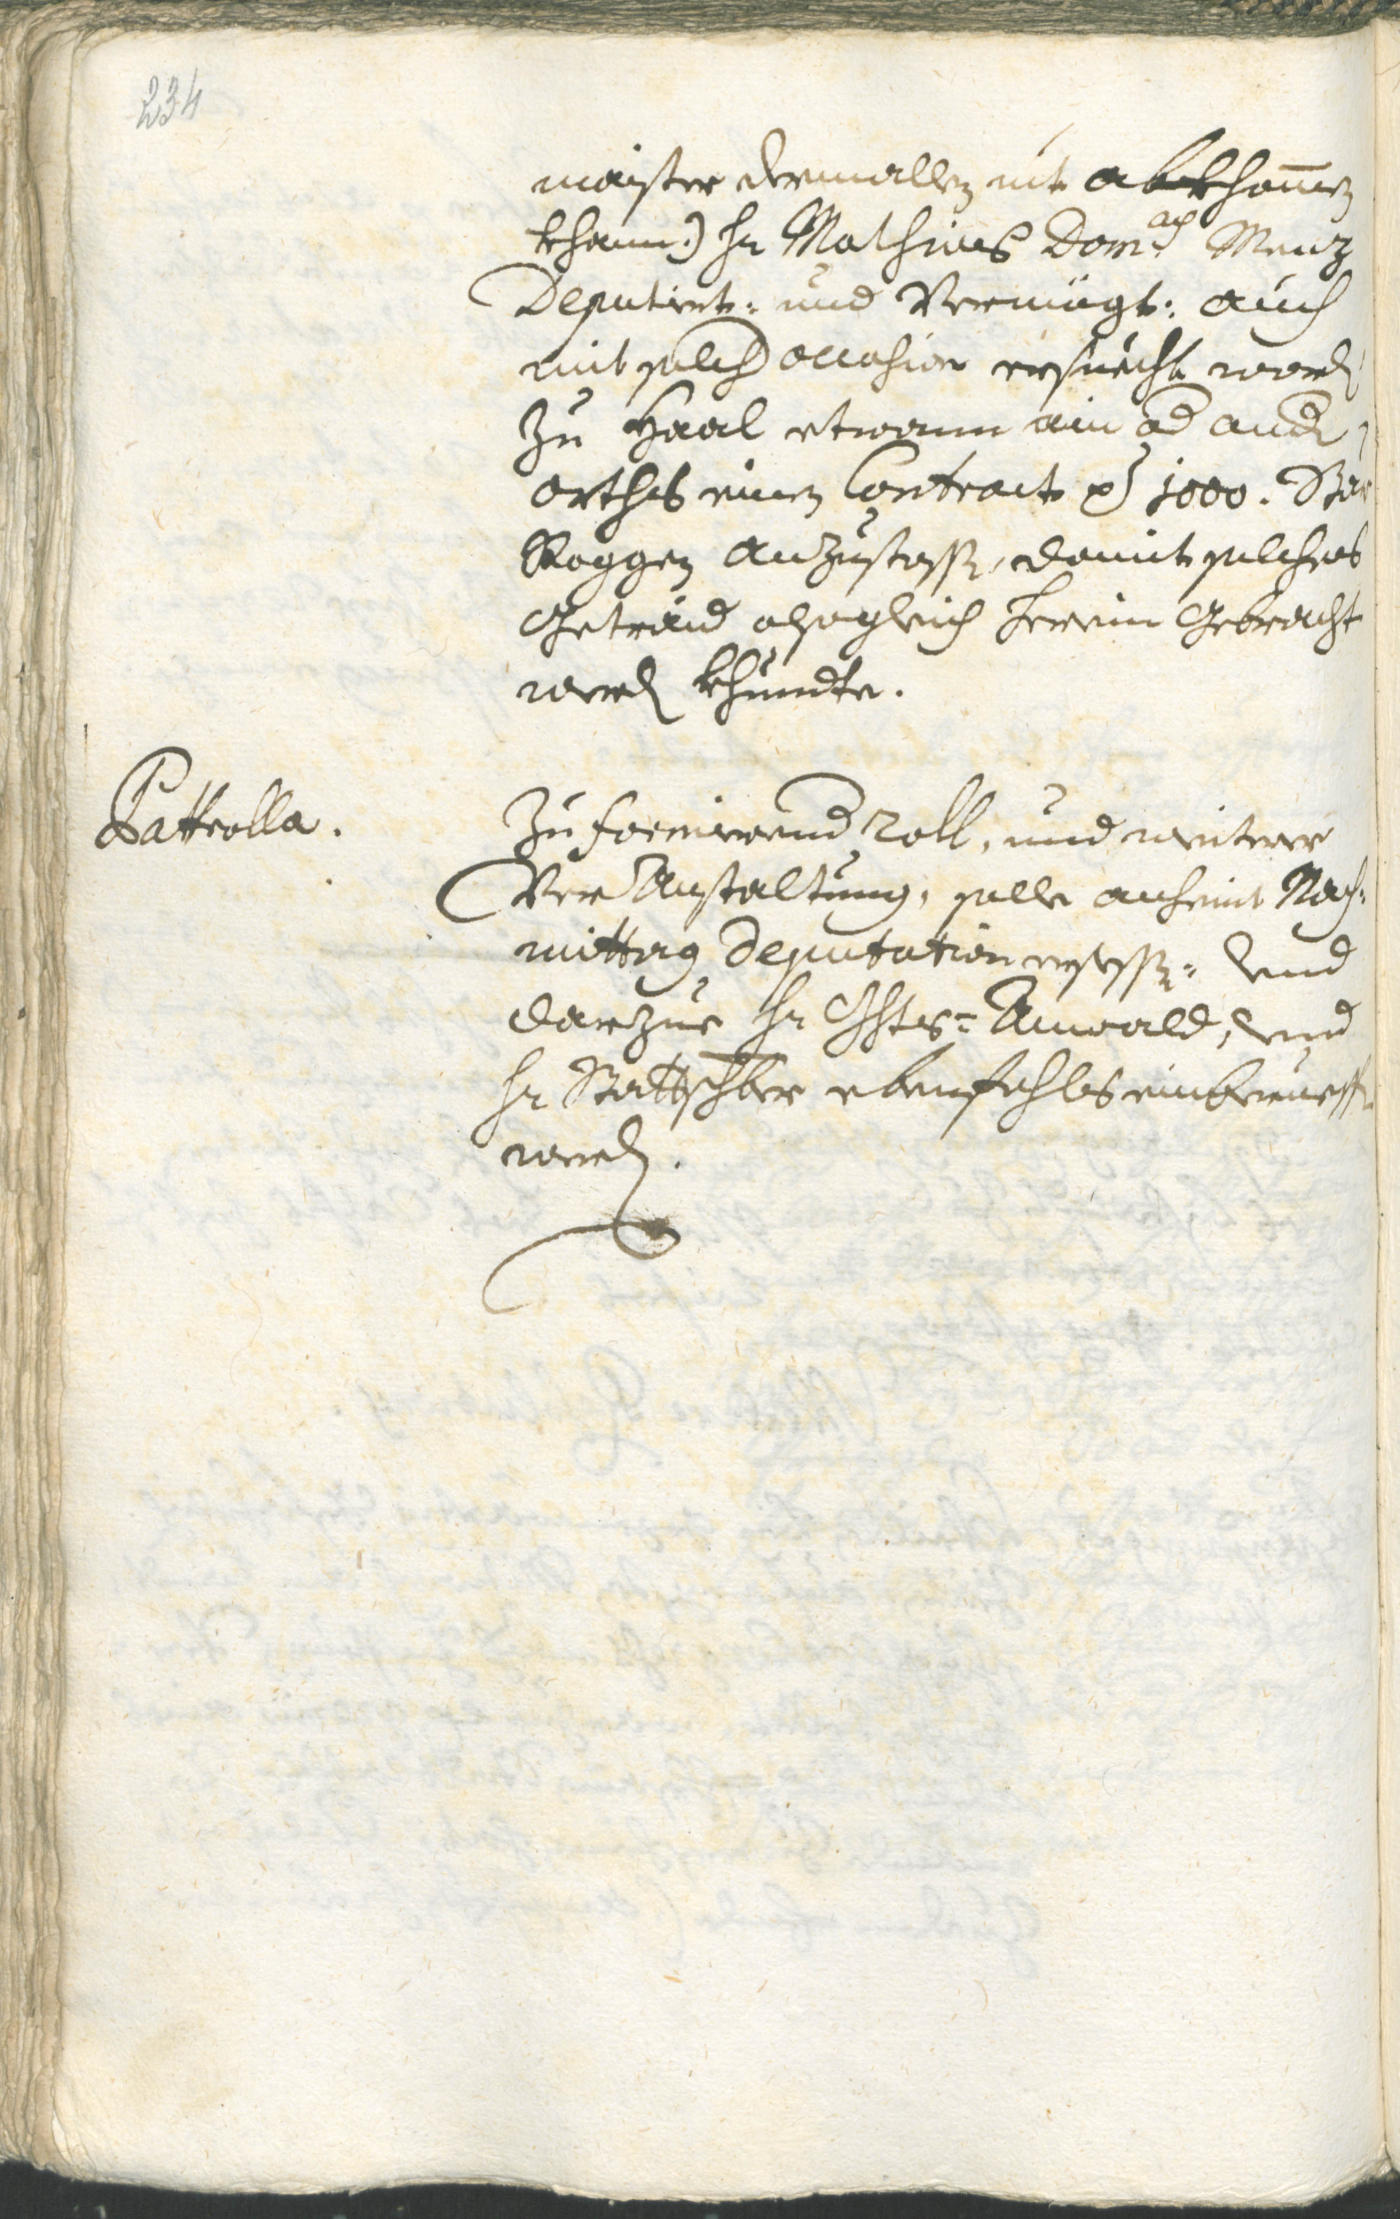 234
maister dermallen nit abkhomen
khann:) Hr Mathias Dom:ac Menz
Deputiert: und Vermügt: auch
mit solch occasion ersuecht werd
zu Haal etwann ain od and
orths einen Contract p 1000. Star
Roggen anzustoss, damit solches
Getraid alsogleich herein Gebracht
werd khundte.
Pattrolla.
Zu formierend Roll, und weiterer
Ver Anstaltung, solle anheint Nach-
mittag Deputation ersess- und
darzue Hr Ghts= Anwald, und
Hr Stattschber ebenfahls einberueff
werd.